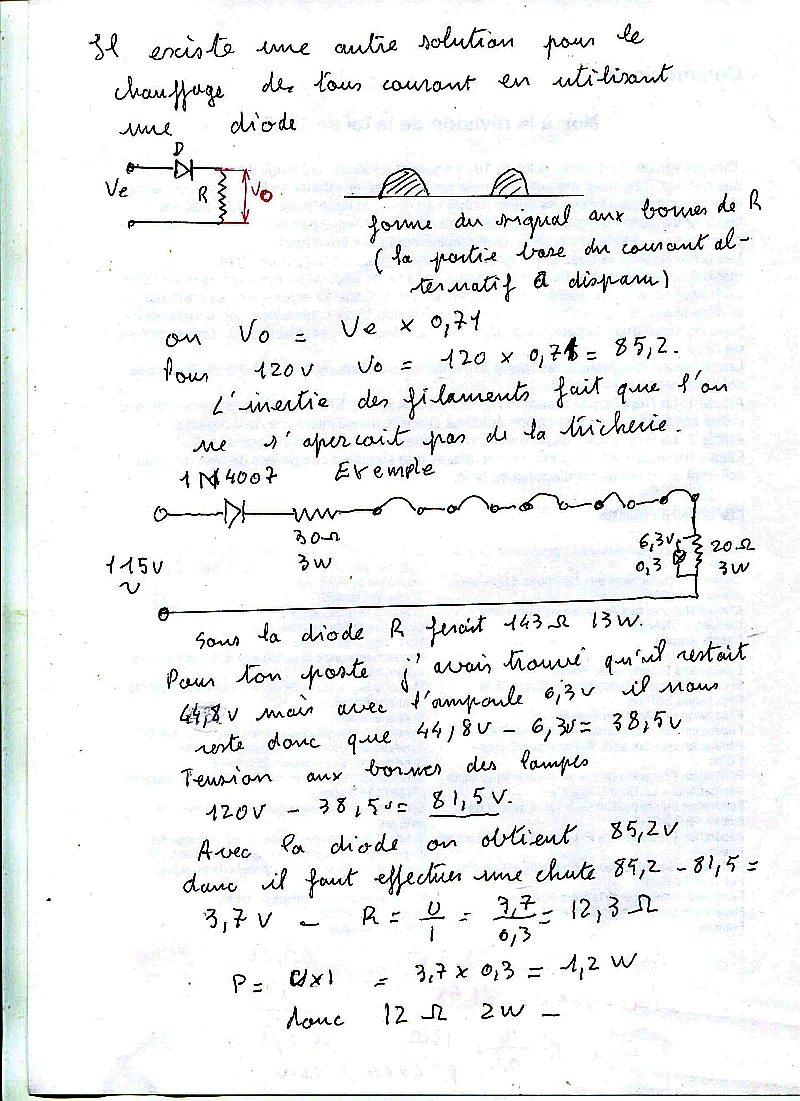 Il existe une autre solution pour le
chauffage des tous courant en utilisant
une diode
D
Ve
R
Vo
forme du signal aux bornes de R
(la partie basse du courant al-
ternatif a disparu)
on Vo = Ve × 0,71
Pour 120V Vo = 120 × 0,71 = 85,2.
L'inertie des filaments fait que l'on
ne s'aperçoit pas de la tricherie.
1N4007 Exemple
30Ω
3W
115V
~
6,3V
0,3
20Ω
3W
Sans la diode R ferait 143Ω 13W.
Pour ton poste j'avais trouvé qu'il restait
44,8V mais avec l'ampoule 6,3V il nous
reste donc que 44,8V - 6,3V = 38,5V
Tension aux bornes des lampes
120V - 38,5V = 81,5V.
Avec la diode on obtient 85,2V
donc il faut effectuer une chute 85,2 - 81,5 =
3,7V - R = U/I = 3,7/0,3 = 12,3 Ω
P = U×I = 3,7 × 0,3 = 1,2 W
donc 12 Ω 2W -